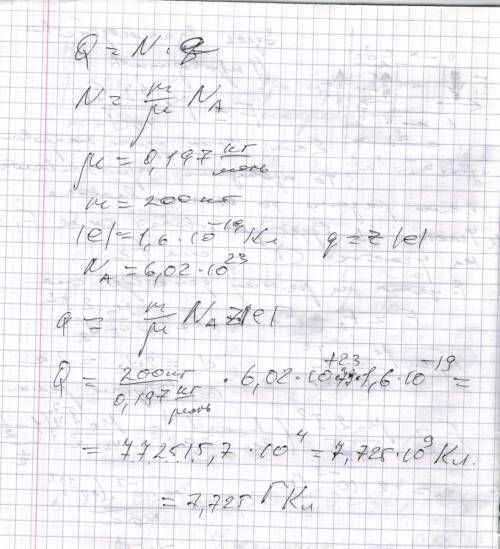 Q = N · q
N = m/μ N_A
μ = 0,197 кг/моль
m = 200 кг
|e| = 1,6 · 10^-19 Кл q = z|e|
N_A = 6,02 · 10^23
Q = m/μ N_A z|e|
Q = 200 кг/0,197 кг/моль · 6,02 · 10^+23 · 79 · 1,6 · 10^-19 =
= 772515,7 · 10^4 = 7,725 · 10^9 Кл.
= 7,725 ГКл